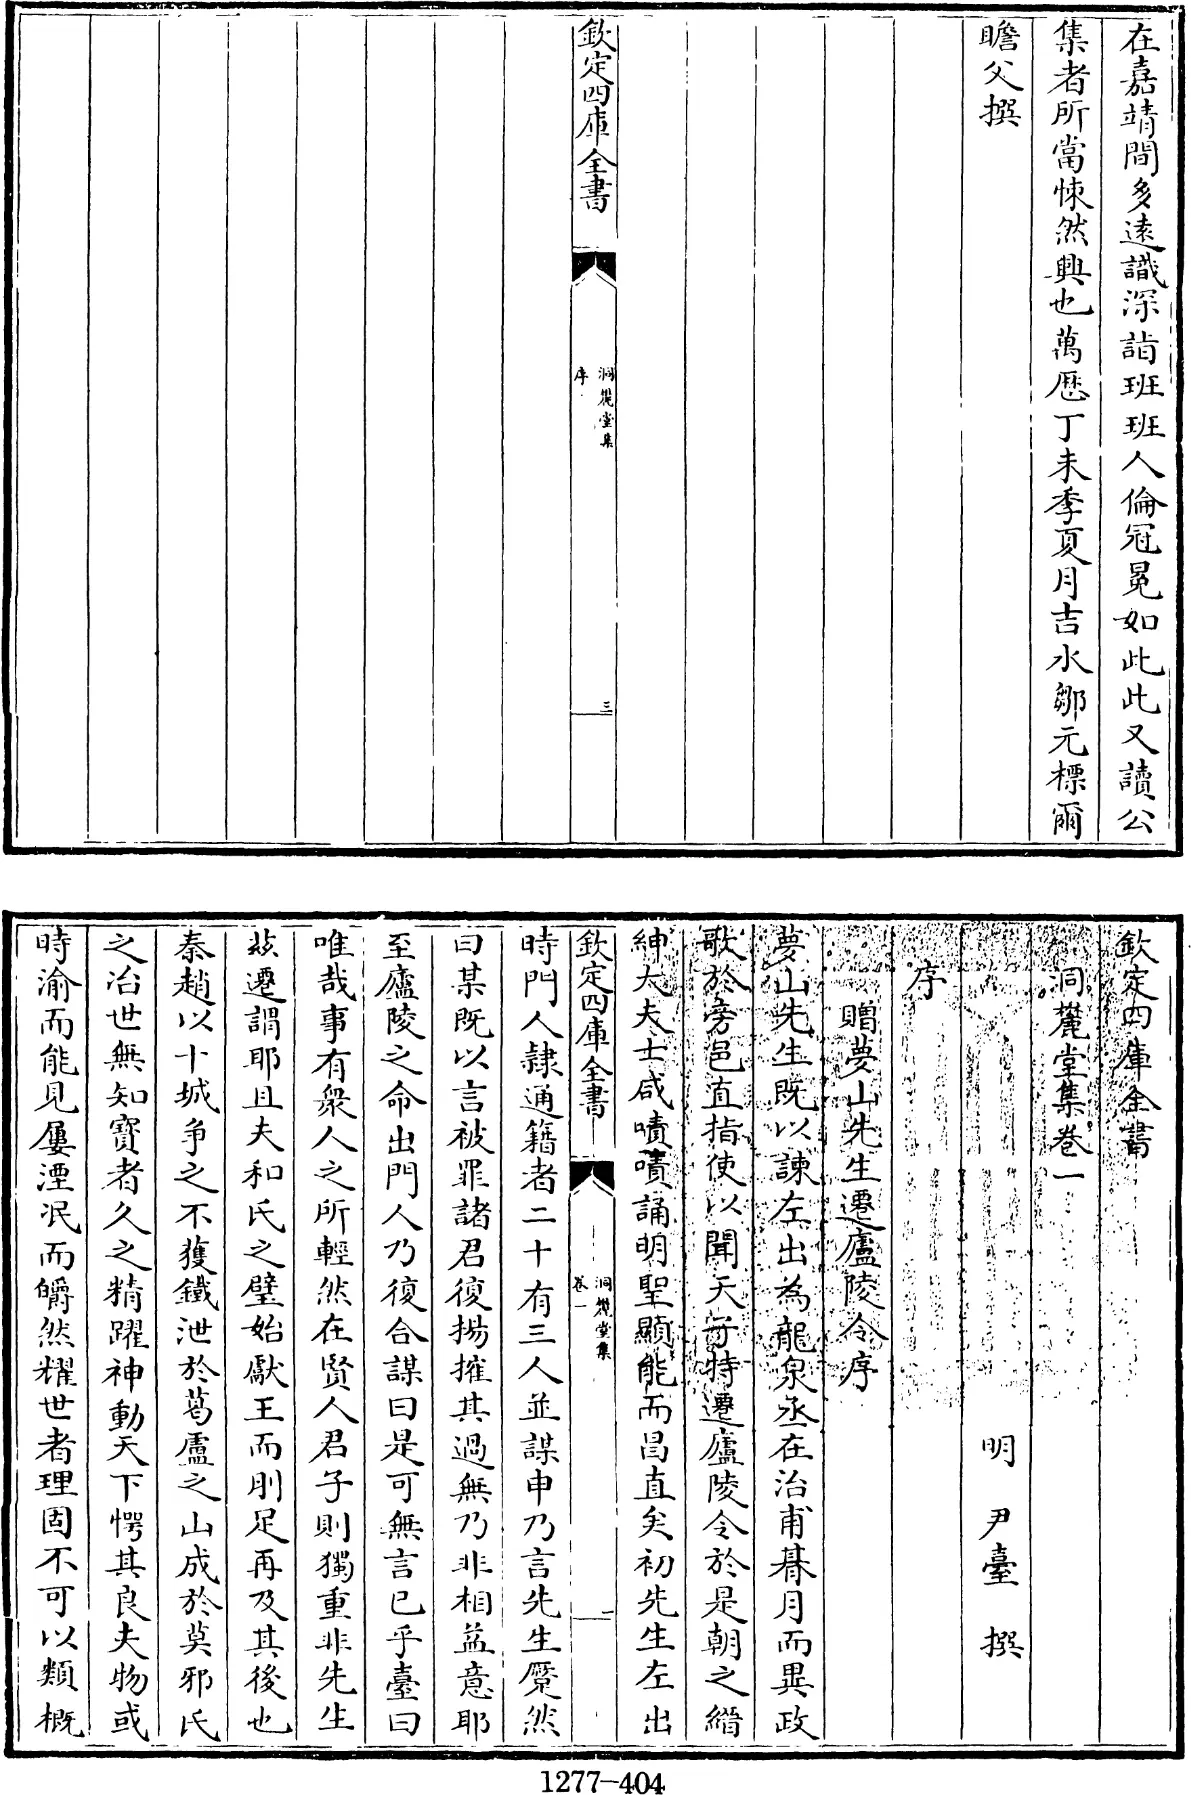 在嘉靖間多遠識深詣班班人倫冠冕如此此又讀公
集者所當悚然興也萬厯丁未季夏月吉水鄒元標爾
瞻父撰
欽定四庫全書
洞麓堂集
序
三
欽定四庫全書
洞麓堂集卷一
明 尹臺 撰
序
贈夢山先生遷廬陵令序
夢山先生既以諫左出為龍泉丞在治甫朞月而異政
歌於旁邑直指使以聞天子特遷廬陵令於是朝之縉
紳大夫士咸嘖嘖誦明聖顯能而昌直矣初先生左出
欽定四庫全書
洞麓堂集
卷一
一
時門人隷通籍者二十有三人並謀申乃言先生蹙然
曰某既以言被罪諸君復揚搉其過無乃非相益意耶
至廬陵之命出門人乃復合謀曰是可無言已乎臺曰
唯哉事有衆人之所輕然在賢人君子則獨重非先生
兹遷謂耶且夫和氏之璧始獻王而刖足再及其後也
秦趙以十城争之不獲鐵泄於葛盧之山成於莫邪氏
之冶世無知寶者久之精躍神動天下愕其良夫物或
時渝而能見屢湮泯而皭然耀世者理固不可以類概
1277-404